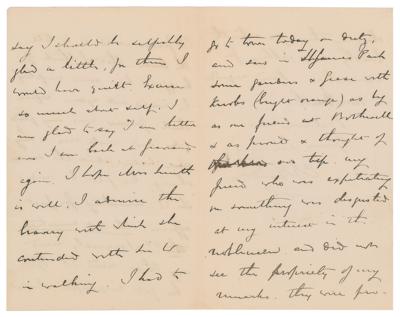 say I should be selfishly
glad a little, for then I
would have guilt because
so much about self. I
am glad to say I am better
now I am back at
again. I hope Mrs
is well. I admire the
bravery with which she
contended with Sir W
in walking. I had to
go to town today on duty,
and saw in St James Park
some ganders & geese with
knobs (bright orange) as big
as our friend at
& as proud & thought of
our trip my
friend who was expatiating
on something was disgusted
at my interest in the
and did not
see the propriety of my
remarks. they were pro-